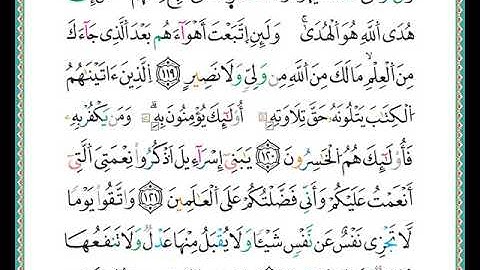 هُدَى ٱللَّهِ هُوَ ٱلْهُدَىٰ وَلَئِنِ ٱتَّبَعْتَ أَهْوَآءَهُم بَعْدَ ٱلَّذِى جَآءَكَ
مِنَ ٱلْعِلْمِ مَا لَكَ مِنَ ٱللَّهِ مِن وَلِىٍّ وَلَا نَصِيرٍ ١١٩ ٱلَّذِينَ ءَاتَيْنَٰهُمُ
ٱلْكِتَٰبَ يَتْلُونَهُۥ حَقَّ تِلَاوَتِهِۦ أُوْلَٰٓئِكَ يُؤْمِنُونَ بِهِۦ وَمَن يَكْفُرْ بِهِۦ
فَأُوْلَٰٓئِكَ هُمُ ٱلْخَٰسِرُونَ ١٢٠ يَٰبَنِىٓ إِسْرَآءِيلَ ٱذْكُرُواْ نِعْمَتِىَ ٱلَّتِىٓ
أَنْعَمْتُ عَلَيْكُمْ وَأَنِّى فَضَّلْتُكُمْ عَلَى ٱلْعَٰلَمِينَ ١٢١ وَٱتَّقُواْ يَوْمًا
لَّا تَجْزِى نَفْسٌ عَن نَّفْسٍ شَيْـًٔا وَلَا يُقْبَلُ مِنْهَا عَدْلٌ وَلَا تَنفَعُهَا